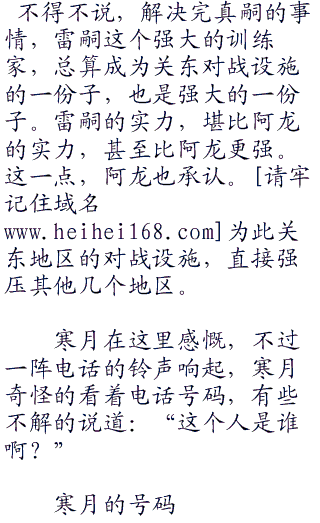 不得不说，解决完真嗣的事
情，雷嗣这个强大的训练
家，总算成为关东对战设施
的一份子，也是强大的一份
子。雷嗣的实力，堪比阿龙
的实力，甚至比阿龙更强。
这一点，阿龙也承认。[请牢
记住域名
www.heihei168.com]为此关
东地区的对战设施，直接强
压其他几个地区。
寒月在这里感慨，不过
一阵电话的铃声响起，寒月
奇怪的看着电话号码，有些
不解的说道：“这个人是谁
啊？”
寒月的号码